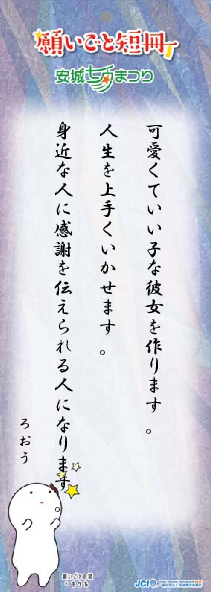 願いごと短冊
安城七夕まつり
可愛くていい子な彼女を作ります。
人生を上手くいかせます。
身近な人に感謝を伝えられる人になります
ろおう
願いごと短冊
JCI